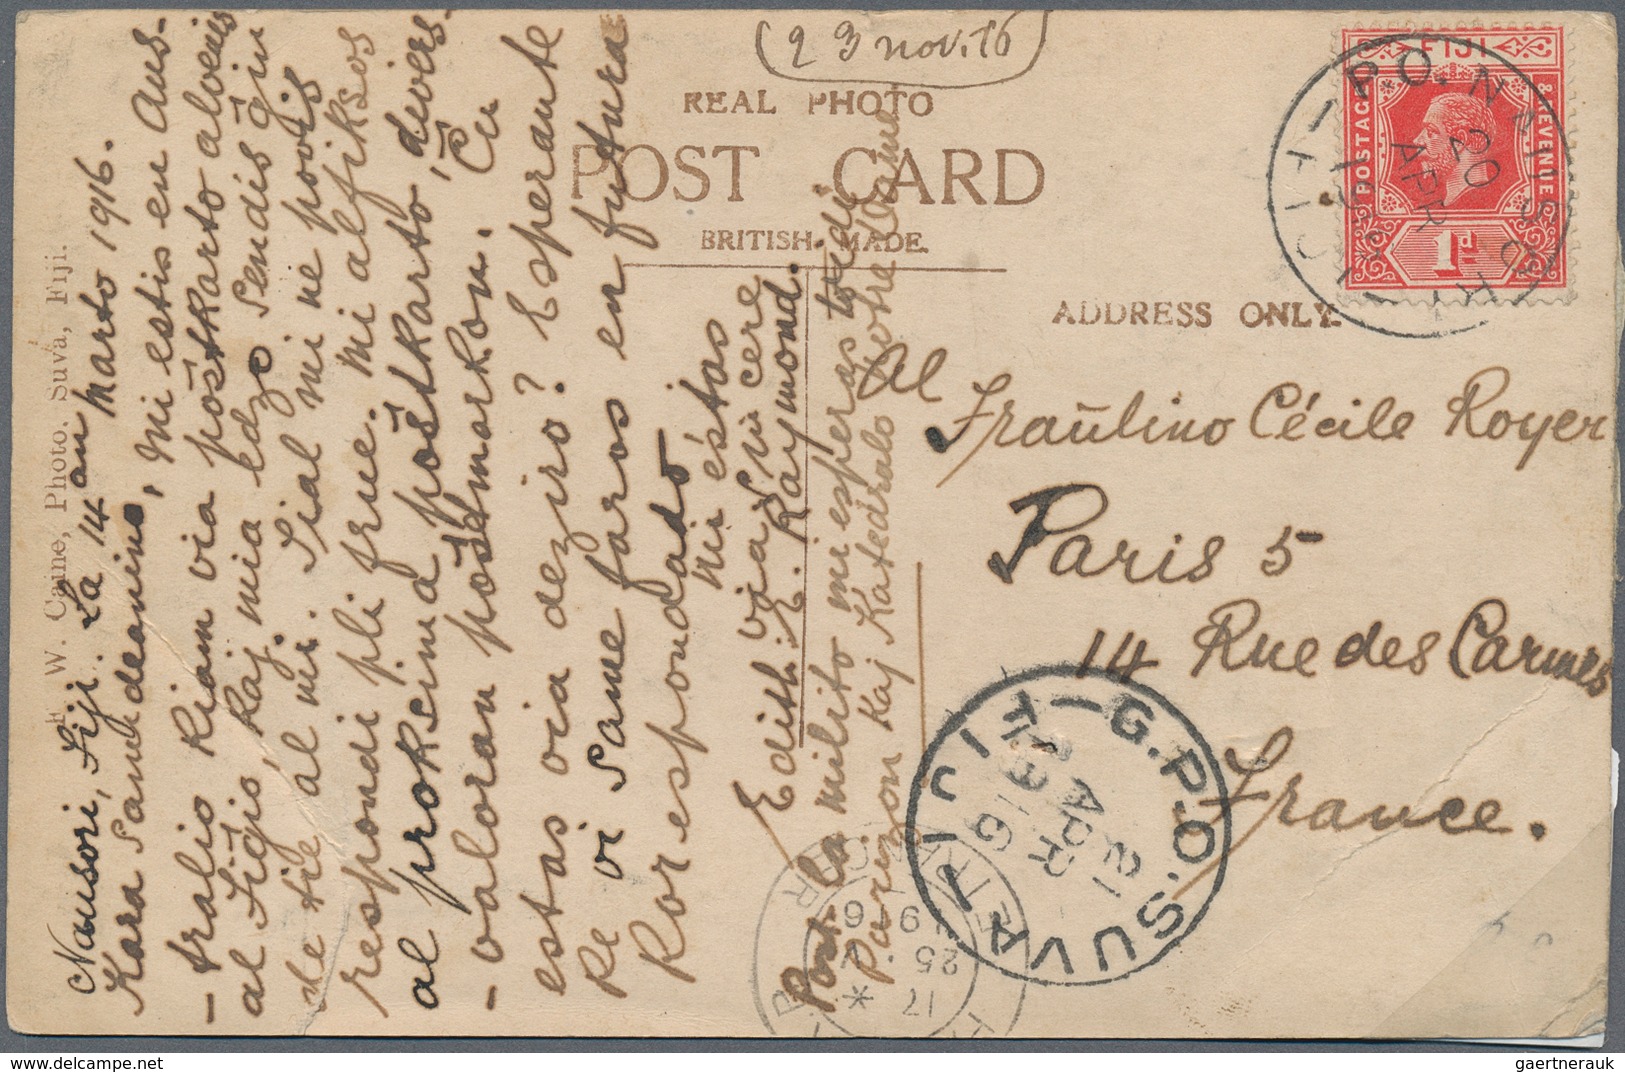 (23 nov. 16)
REAL PHOTO
POST CARD
BRITISH MADE.
ADDRESS ONLY.
FIJI
POSTAGE & REVENUE
1d
P.O. NAUSORI
20
APR
FIJI
F. W. Caine, Photo, Suva, Fiji.
Nausori, Fiji. La 14an Marto 1916.
Kara Samideanino, Mi estis en Aus-
-tralio kiam via poŝtkarto alvenis
al Fiĝio, kaj mia edzo sendis ĝin
ste tie al mi. Sial mi ne povis
respondi pli frue. Mi alfiksos
al proksima poŝtkarto, divers-
-valoran poŝtmarkon. Ĉu
estas via deziro? Esperante
Re vi same faros en futura
Korespondado
Mi estas
Edith via sincere
E. Raymond.
Post la milito mi esperas vidi
Parizon kaj Katedralo Notre Dame
al
Fraŭlino Cécile Royer
Paris 5
14 Rue des Carmes
France.
G.P.O. SUVA
FIJI
APR
16
17
25
9 16
gaertnerauk.com